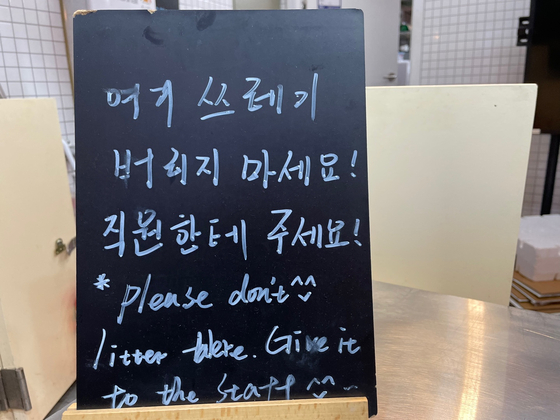 여기 쓰레기
버리지 마세요!
직원한테 주세요!
* please don't ^^
litter here. Give it
to the staff ^^~